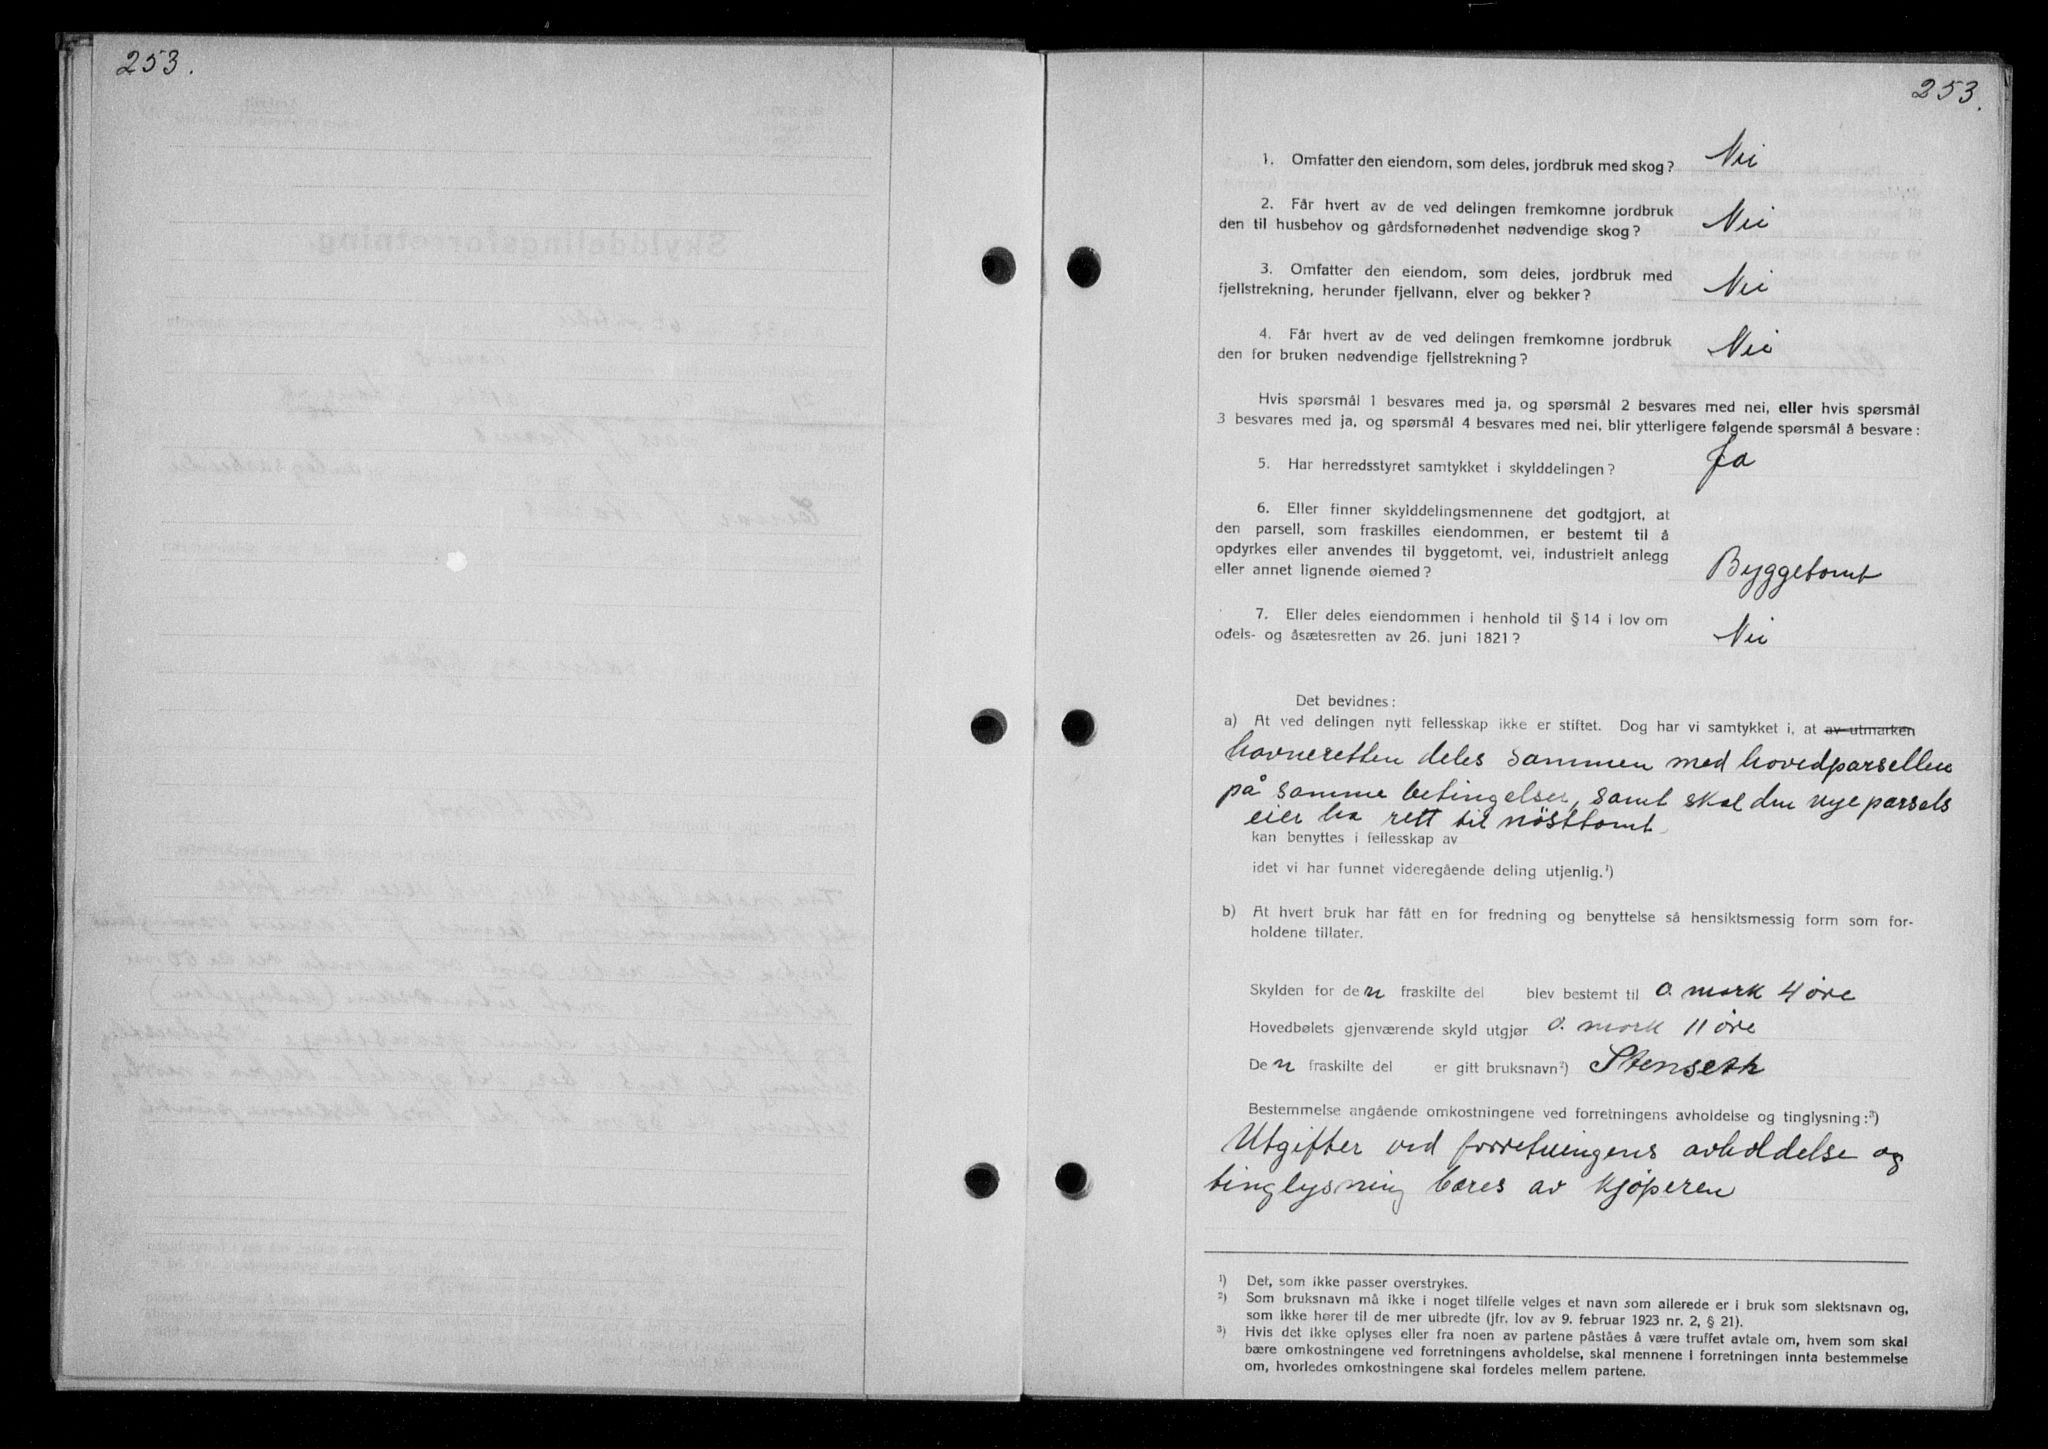 253.
253.
1. Omfatter den eiendom, som deles, jordbruk med skog? Nei
2. Får hvert av de ved delingen fremkomne jordbruk
den til husbehov og gårdsfornødenhet nødvendige skog? Nei
3. Omfatter den eiendom, som deles, jordbruk med
fjellstrekning, herunder fjellvann, elver og bekker? Nei
4. Får hvert av de ved delingen fremkomne jordbruk
den for bruken nødvendige fjellstrekning? Nei
Hvis spørsmål 1 besvares med ja, og spørsmål 2 besvares med nei, eller hvis spørsmål
3 besvares med ja, og spørsmål 4 besvares med nei, blir ytterligere følgende spørsmål å besvare:
5. Har herredsstyret samtykket i skylddelingen? Ja
6. Eller finner skylddelingsmennene det godtgjort, at
den parsell, som fraskilles eiendommen, er bestemt til å
opdyrkes eller anvendes til byggetomt, vei, industrielt anlegg
eller annet lignende øiemed? Byggetomt
7. Eller deles eiendommen i henhold til § 14 i lov om
odels- og åsætesretten av 26. juni 1821? Nei
Det bevidnes:
a) At ved delingen nytt fellesskap ikke er stiftet. Dog har vi samtykket i, at av utmarken
havneretten deles sammen med hovedparsellen
på samme betingelser, samt skal den nye parsels
eier ha rett til nösttomt.
kan benyttes i fellesskap av
idet vi har funnet videregående deling utjenlig.¹)
b) At hvert bruk har fått en for fredning og benyttelse så hensiktsmessig form som for-
holdene tillater.
Skylden for den fraskilte del blev bestemt til 0. mark 4 øre
Hovedbølets gjenværende skyld utgjør 0. mark 11 øre
Den fraskilte del er gitt bruksnavn²) Stenseth
Bestemmelse angående omkostningene ved forretningens avholdelse og tinglysning:³)
Utgifter ved forretningens avholdelse og
tinglysning bæres av kjøperen
¹) Det, som ikke passer overstrykes.
²) Som bruksnavn må ikke i noget tilfelle velges et navn som allerede er i bruk som slektsnavn og,
som ikke hører til de mer utbredte (jfr. lov av 9. februar 1923 nr. 2, § 21).
³) Hvis det ikke oplyses eller fra noen av partene påståes å være truffet avtale om, hvem som skal
bære omkostningene ved forretningens avholdelse, skal mennene i forretningen innta bestemmelse
om, hvorledes omkostningene skal fordeles mellem partene.